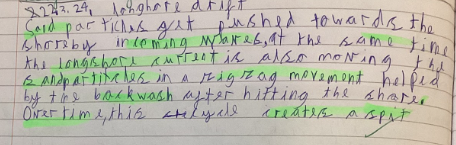 longshore drift
Sand particles get pushed towards the
shore by incoming waves, at the same time
the longshore current is also moving the
sand particles in a zigzag movement helped
by the backwash after hitting the shore.
Over time, this cycle creates a spit